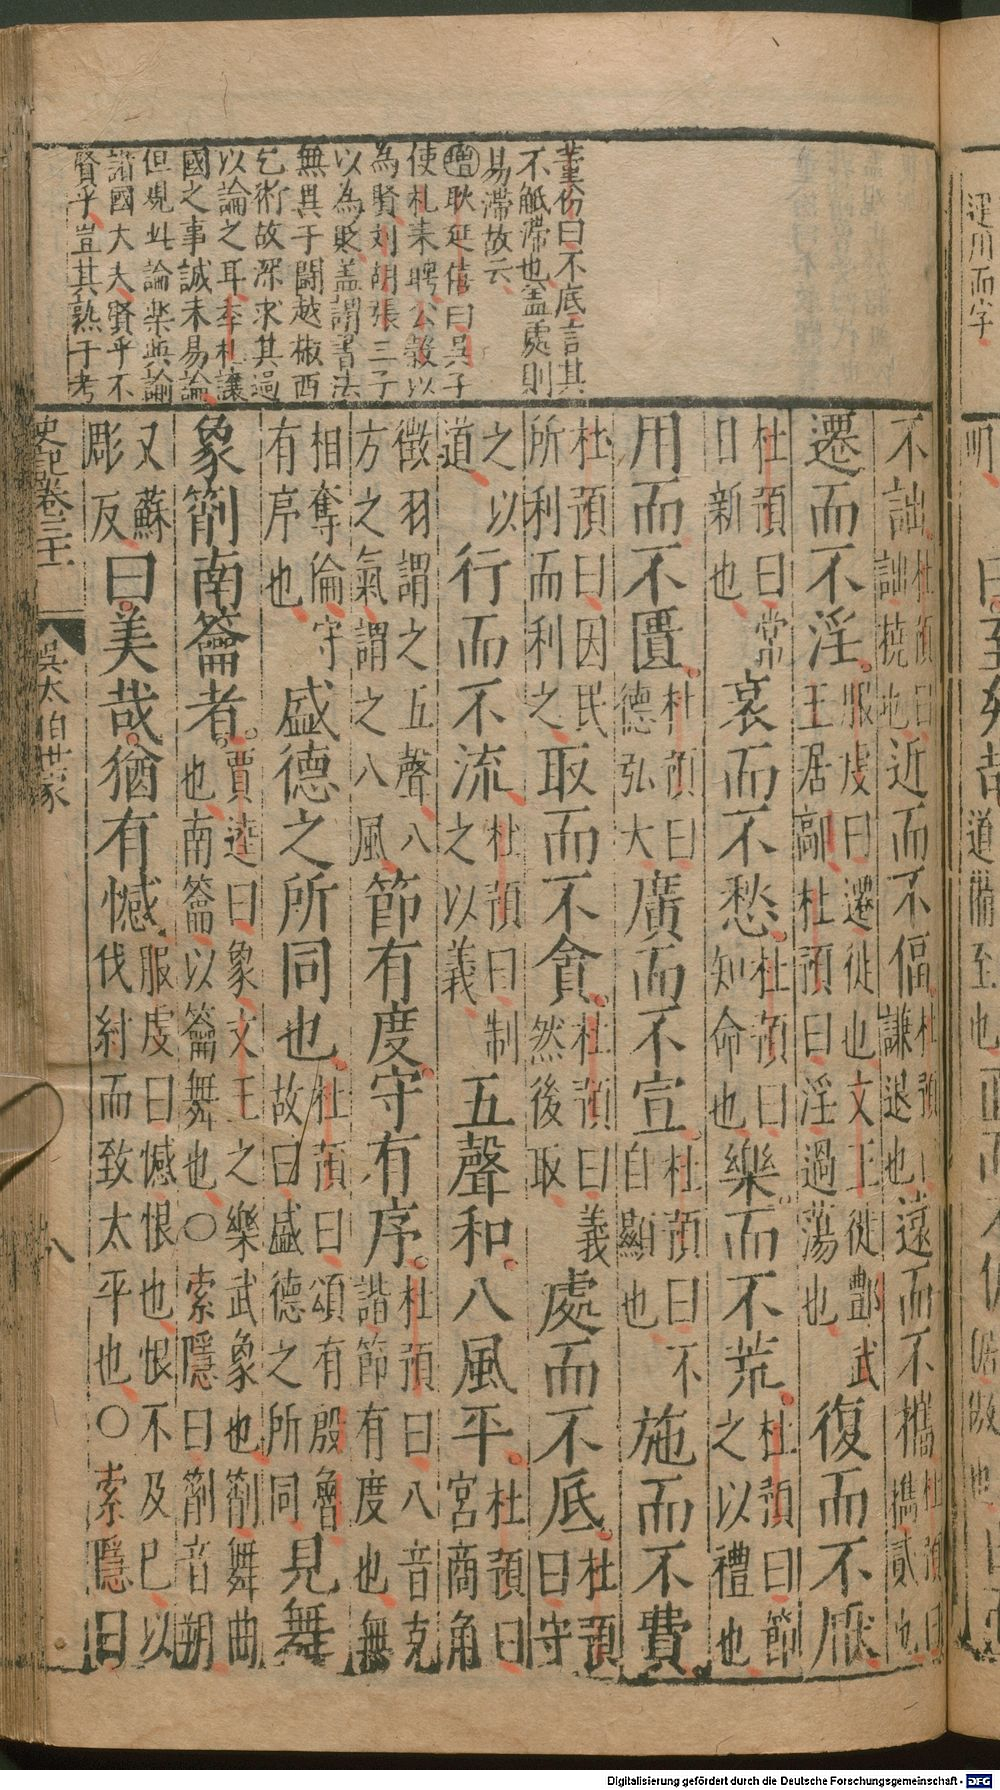 董份曰不底言其
不觝滯也盖處則
易滯故云
增耿延僖曰吳子
使札来聘公穀以
為賢刘胡張三子
以為貶盖謂書法
無異于闘越椒西
乞術故深求其過
以論之耳季札讓
國之事誠未易論
但覌此論楽與論
諸國大夫賢乎不
賢乎豈其熟于考
不詘杜預曰詘橈也近而不偪杜預曰謙退也遠而不㩗杜預曰攜貳也
遷而不淫服虔曰遷徙也文王徙酆武王居鄗杜預曰淫過蕩也復而不厭
杜預曰常日新也哀而不愁杜預曰知命也樂而不荒杜預曰節之以禮也
用而不匱杜預曰德弘大廣而不宣杜預曰不自顯也施而不費
杜預曰因民所利而利之取而不貪杜預曰義然後取處而不底杜預曰守
之以道行而不流杜預曰制之以義五聲和八風平杜預曰宮商角
徵羽謂之五聲八方之氣謂之八風節有度守有序杜預曰八音克諧節有度也無
相奪倫守有序也盛德之所同也杜預曰頌有殷魯故曰盛德之所同見舞
象箾南籥者賈逵曰象文王之樂武象也箾舞曲也南籥以籥舞也○索隱曰箾音朔
又蘇彫反曰美哉猶有憾服虔曰憾恨也恨不及已以伐紂而致太平也○索隱曰
史記卷三十一
吳太伯世家
八
Digitalisierung gefördert durch die Deutsche Forschungsgemeinschaft - DFG